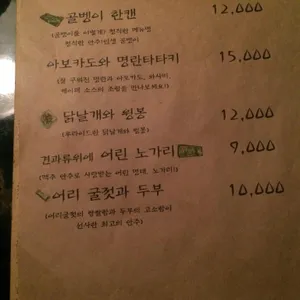 골뱅이 한캔 12,000
(골뱅이를 이렇게? 정직한 메뉴명
정직한 안주!인생 골뱅이)
아보카도와 명란타타키 15,000
(잘 구워진 명란과 아보카도, 와사비,
케이퍼 소스의 조합을 만나보세요!)
닭날개와 윙봉 12,000
(후라이드한 닭날개와 윙봉)
견과류위에 어린 노가리 9,000
(맥주 안주로 사랑받는 어린 명태, 노가리!)
어리 굴젓과 두부 10,000
(어리굴젓의 향컬함과 두부의 고소함이
선사한 최고의 안주)